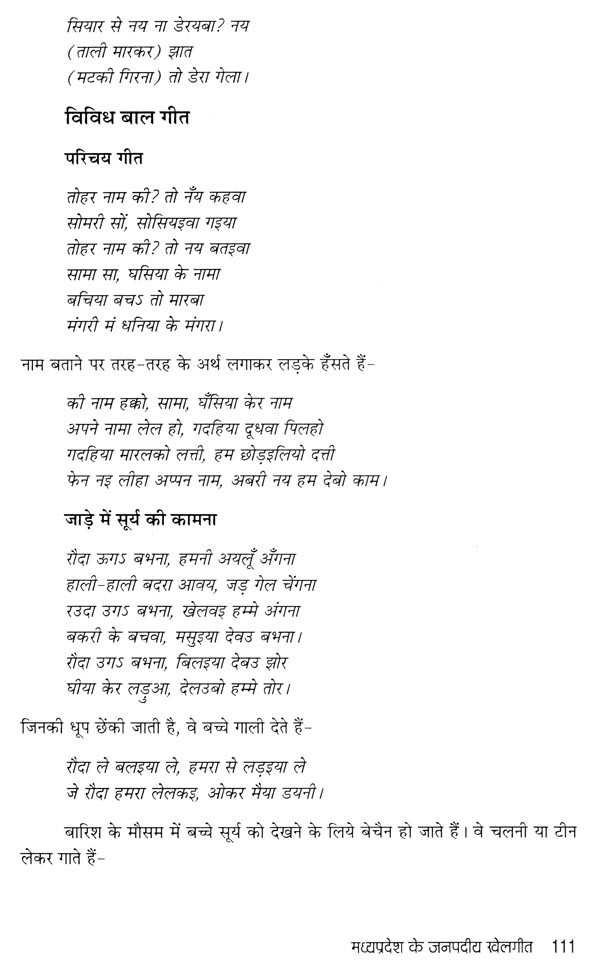 सियार से नय ना डेरयबा? नय
(ताली मारकर) झात
(मटकी गिरना) तो डेरा गेला।
विविध बाल गीत
परिचय गीत
तोहर नाम की? तो नँय कहवा
सोमरी सों, सोसियइवा गइया
तोहर नाम की? तो नय बतइवा
सामा सा, घसिया के नामा
बचिया बचऽ तो मारबा
मंगरी मं धनिया के मंगरा।
नाम बताने पर तरह-तरह के अर्थ लगाकर लड़के हँसते हैं-
की नाम हक्को, सामा, घँसिया केर नाम
अपने नामा लेल हो, गदहिया दूधवा पिलहो
गदहिया मारलको लत्ती, हम छोड़इलियो दत्ती
फेन नइ लीहा अप्पन नाम, अबरी नय हम देबो काम।
जाड़े में सूर्य की कामना
रौदा ऊगऽ बभना, हमनी अयलूँ अँगना
हाली-हाली बदरा आवय, जड़ गेल चेंगना
रउदा उगऽ बभना, खेलवइ हम्मे अंगना
बकरी के बचवा, मसुइया देवउ बभना।
रौदा उगऽ बभना, बिलइया देबउ झोर
घीया केर लड़ुआ, देलउबो हम्मे तोर।
जिनकी धूप छेंकी जाती है, वे बच्चे गाली देते हैं-
रौदा ले बलइया ले, हमरा से लड़इया ले
जे रौदा हमरा लेलकइ, ओकर मैया डयनी।
बारिश के मौसम में बच्चे सूर्य को देखने के लिये बेचैन हो जाते हैं। वे चलनी या टीन
लेकर गाते हैं-
मध्यप्रदेश के जनपदीय खेलगीत 111